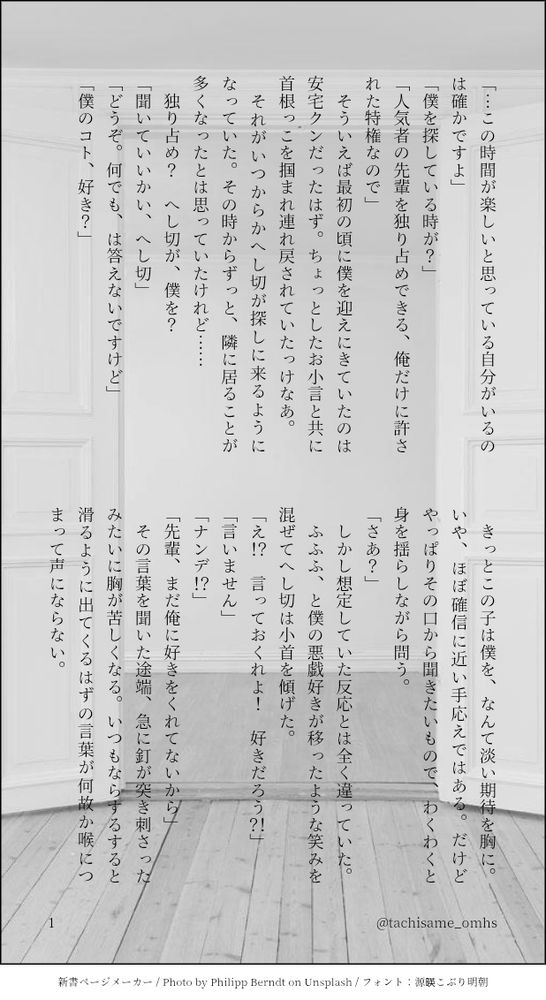 「…この時間が楽しいと思っている自分がいるの
は確かですよ」
「僕を探している時が？」
「人気者の先輩を独り占めできる、俺だけに許さ
れた特権なので」
　そういえば最初の頃に僕を迎えにきていたのは
安宅クンだったはず。ちょっとしたお小言と共に
首根っこを掴まれ連れ戻されていたっけなあ。
　それがいつからかへし切が探しに来るように
なっていた。その時からずっと、隣に居ることが
多くなったとは思っていたけれど……
　独り占め？　へし切が、僕を？
「聞いていいかい、へし切」
「どうぞ。何でも、は答えないですけど」
「僕のコト、好き？」
　きっとこの子は僕を、なんて淡い期待を胸に。
いや、ほぼ確信に近い手応えではある。だけど
やっぱりその口から聞きたいもので、わくわくと
身を揺らしながら問う。
「さあ？」
　しかし想定していた反応とは全く違っていた。
　ふふふ、と僕の悪戯好きが移ったような笑みを
混ぜてへし切は小首を傾げた。
「え!?　言っておくれよ！　好きだろう?!」
「言いません」
「ナンデ!?」
「先輩、まだ俺に好きをくれてないから」
　その言葉を聞いた途端、急に釘が突き刺さった
みたいに胸が苦しくなる。いつもならするすると
滑るように出てくるはずの言葉が何故か喉につ
まって声にならない。
1
@tachisame_omhs
新書ページメーカー / Photo by Philipp Berndt on Unsplash / フォント：源暎こぶり明朝